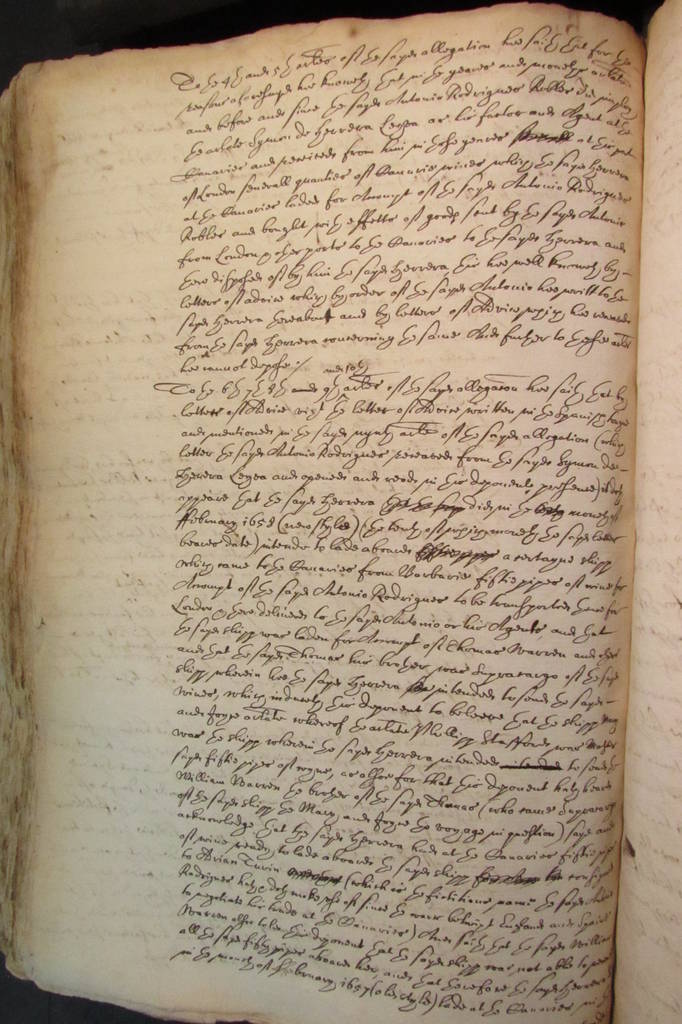 To the 4th and 5th articles of the sayd allegation hee saith that for the
reasons aforesayd hee knoweth that in the yeares and moneths articulate
and before and since the sayd Antonio Rodrigues Robles did imploy
the articulate Symon de Herrera Leyta as his factor and Agent at the
Canaries and received from him in those yeares at this port
of London severall quantities of Canarie wines which the sayd Herrera
at the Canaries laded for Accompt of the sayd Antonio Rodrigues
Robles and bought with effects of goods sent by the sayd Antonio
from London & other ports to the Canaries to the sayd Herrera and
there disposed of by him the sayd Herrera, this hee well knoweth by
letters of advice which by order of the sayd Antonio hee writt to the
sayd Herrera thereabout and by letters of Advice which hee received
from the sayd Herrera concerning the same And further to these articles
hee cannot depose :/
and 10th
To the 6th 7th 8th and 9th articles of the sayd allegation hee saith that by
letters of Advice vizt the letter of Advice written in the Spanish tongue
and mentioned in the sayd article of the sayd allegation (which
letter the sayd Antonio Rodrigues received from the sayd Symon de
Herrera Leyta and opened and read in this deponents presence) it doth
appeare that the sayd Herrera did in the moneth of
ffebruary 1658 (new style) (the tenth of which moneth the sayd letter
beares date) intend to lade aboard a certayne shipp
which came to the Canaries from Barbarie fiftie pipes of wine for
Accompt of the sayd Antonio Rodrigues to be transported thence for
London & there delivered to the sayd Antonio or his Agents and that
the sayd shipp was laden for Accompt of Thomas Warren and
and that the sayd Thomas his brother was Supracargo of the sayd
shipp, wherein hee the sayd Herrera intended to send the sayd
wines, which induceth this deponent to beleeve that the shipp Mary
and Joyce articulate whereof the articulate Phillipp Stafford was Master
was the shipp wherein the sayd Herrera intended to send the
sayd fiftie pipes of wyne, as also for that this deponent hath heard
William Warren the brother of the sayd Thomas (who came Supracargo
of the sayd shipp the Mary and Joyce the voyage in question) say and
acknowledge that the sayd Herrera had at the Canaries fiftie pipes
of wine ready to lade aboard the sayd shipp
to Adrian (which is the fictitious name the sayd Antonio
Rodrigues hath & doth make use of since the warr betwixt England and Spaine
to negotiate his trade at the Canaries) And saith that the sayd William
Warren also told this deponent that the sayd shipp was not able to
all the sayd fiftie pipes aboard her, and that therefore the sayd Herrera
in the moneth of ffebruary 1657 (old style) lade at the Canaries in